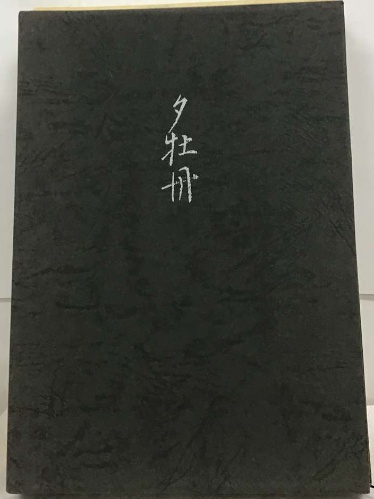 夕牡丹